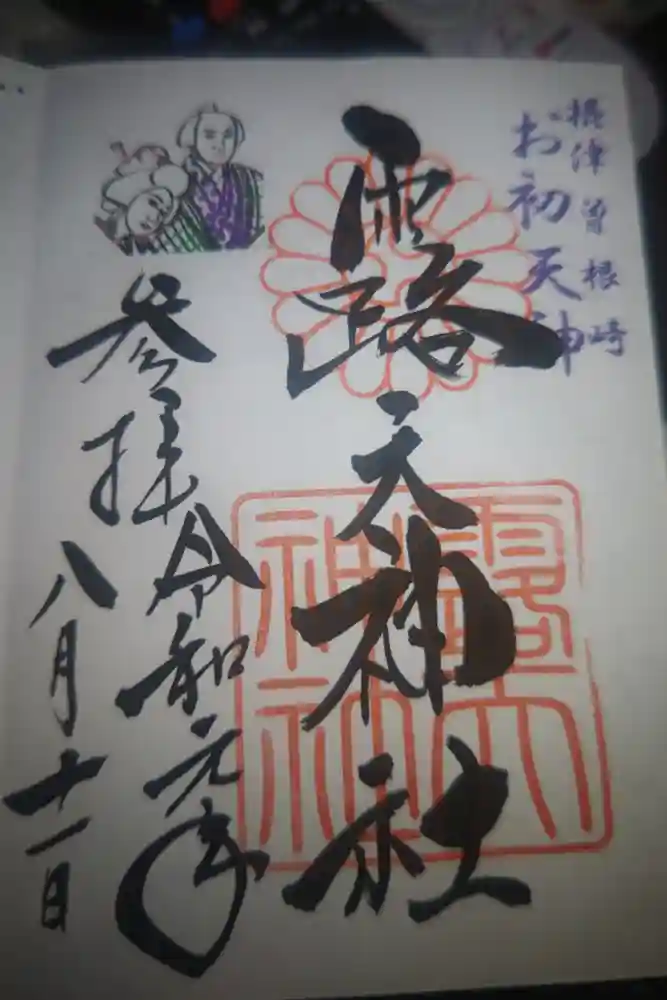 摂津曽根崎
お初天神
露天神社
参拝
令和元年
八月十一日